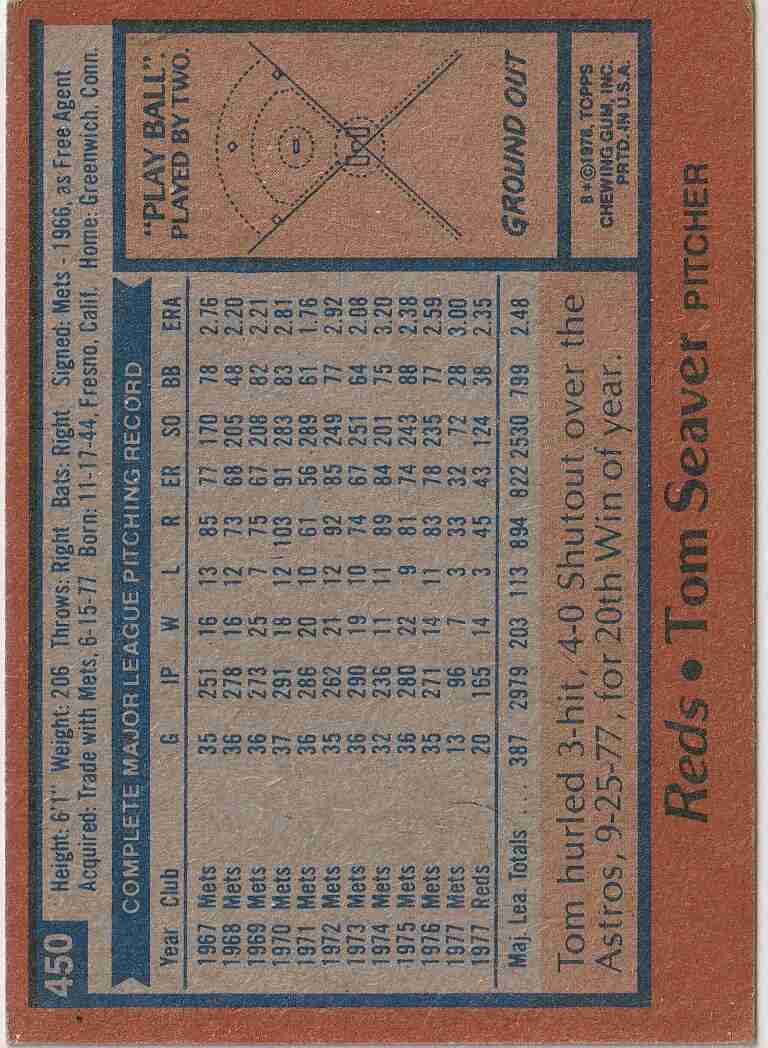 450
Height: 6'1" Weight: 206 Throws: Right Bats: Right Signed: Mets - 1966, as Free Agent
Acquired: Trade with Mets, 6-15-77 Born: 11-17-44, Fresno, Calif. Home: Greenwich, Conn.
COMPLETE MAJOR LEAGUE PITCHING RECORD
Year Club G IP W L R ER SO BB ERA
1967 Mets 35 251 16 13 85 77 170 78 2.76
1968 Mets 36 278 16 12 73 68 205 48 2.20
1969 Mets 36 273 25 7 75 67 208 82 2.21
1970 Mets 37 291 18 12 103 91 283 83 2.81
1971 Mets 36 286 20 10 61 56 289 61 1.76
1972 Mets 35 262 21 12 92 85 249 77 2.92
1973 Mets 36 290 19 10 74 67 251 64 2.08
1974 Mets 32 236 11 11 89 84 201 75 3.20
1975 Mets 36 280 22 9 81 74 243 88 2.38
1976 Mets 35 271 14 11 83 78 235 77 2.59
1977 Mets 13 96 7 3 33 32 72 28 3.00
1977 Reds 20 165 14 3 45 43 124 38 2.35
Maj. Lea. Totals ... 387 2979 203 113 894 822 2530 799 2.48
Tom hurled 3-hit, 4-0 Shutout over the
Astros, 9-25-77, for 20th Win of year.
"PLAY BALL":
PLAYED BY TWO.
GROUND OUT
B*©1978, TOPPS
CHEWING GUM, INC.
PRTD. IN U.S.A.
Reds • Tom Seaver PITCHER